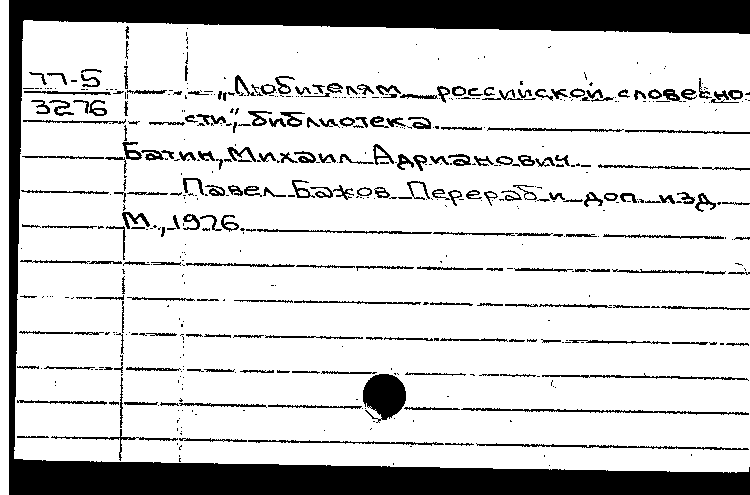 77-5
3276
„Любителям российской словесно-
сти", библиотека
Батин, Михаил Адрианович
Павел Бажов Перераб и доп. изд
М., 1976